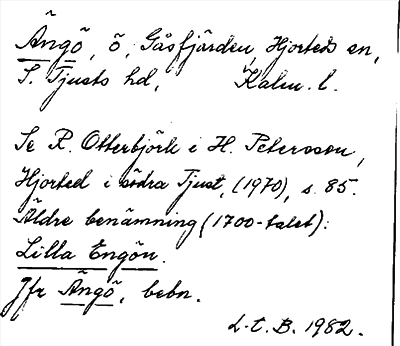 Ängö, ö, Gåsfjärden, Hjorteds sn,
S. Tjusts hd, Kalm. l.
Se R. Otterbjörk i H. Petersson,
Hjorted i södra Tjust, (1970), s. 85.
Äldre benämning (1700-talet):
Lilla Engön.
Jfr Ängö, bebn.
L.t.B. 1982.